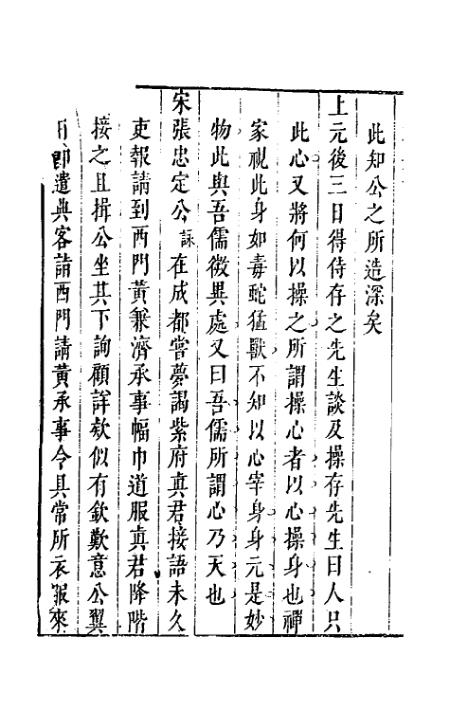 此知公之所造深矣
上元後三日得侍存之先生談及操存先生曰人只
此心又將何以操之所謂操心者以心操身也禪
家視此身如毒蛇猛獸不知以心宰身身元是妙
物此與吾儒微異處又曰吾儒所謂心乃天也
宋張忠定公詠在成都嘗夢謁紫府真君接語未久
吏報請到西門黃兼濟承事幅巾道服真君降階
接之且揖公坐其下詢顧詳欵似有欽歎意公翼
日即遣典客詣西門請黃承事令具常所衣服來